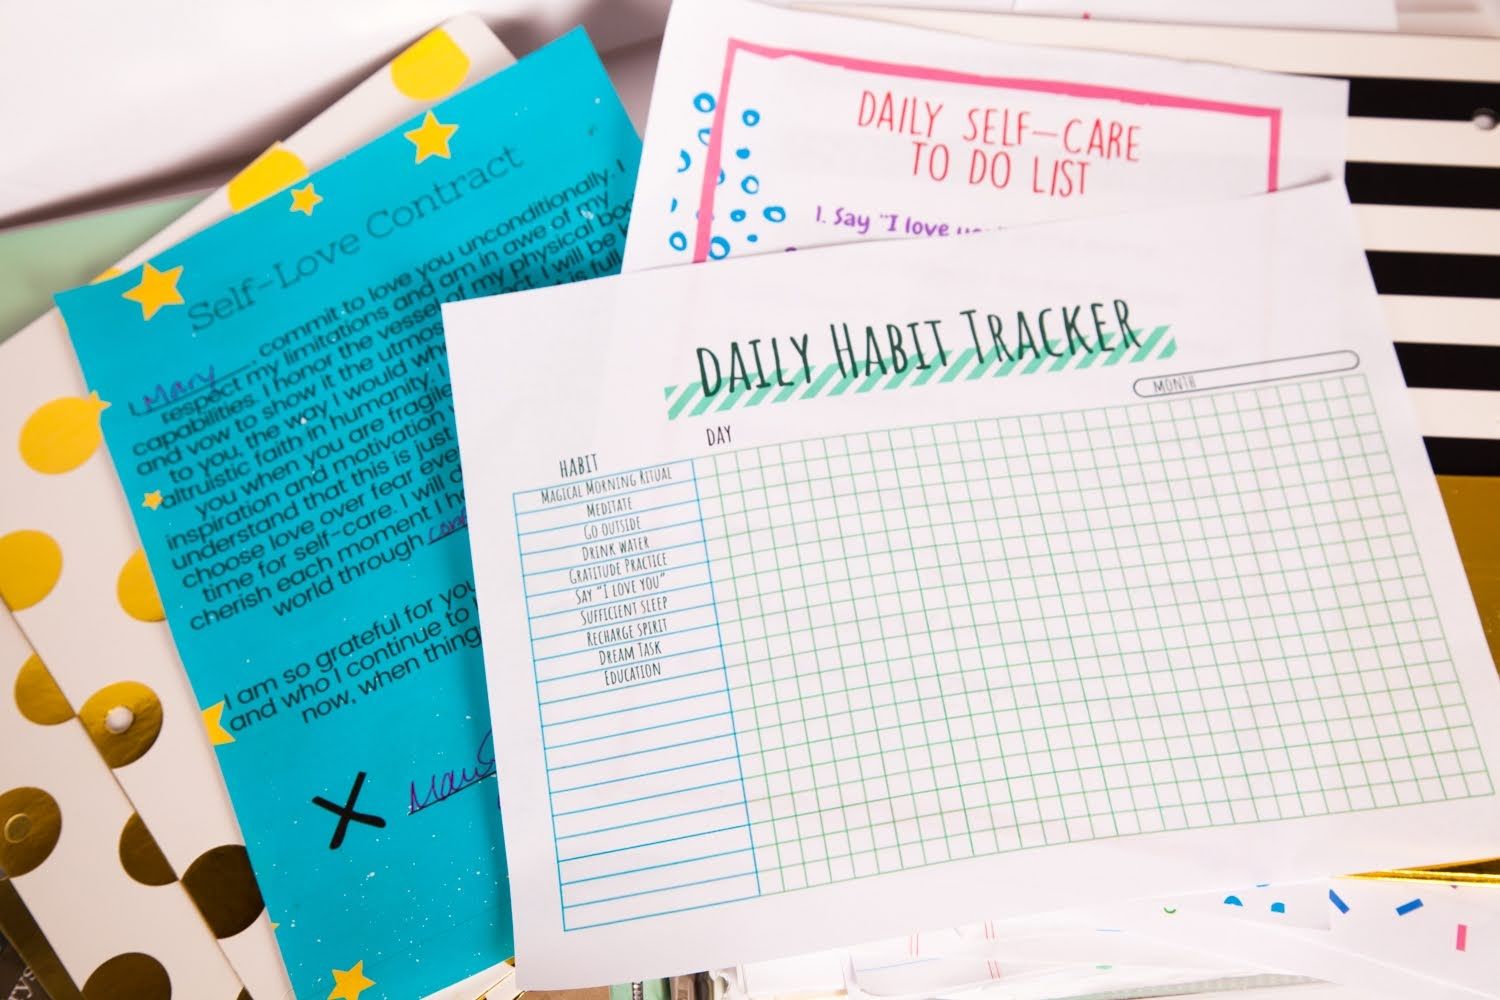 Self-Love Contract
I, Mary, commit to love you unconditionally. I
respect my limitations and am in awe of my
capabilities. I honor the vessel of my physical
and vow to show it the utmos
to you, the way I would wh
altruistic faith in humanity. I
you when you are fragile
inspiration and motivation
understand that this is just
choose love over fear eve
time for self-care. I will
cherish each moment I
world through
I am so grateful for you
and who I continue to
now, when thing
X
DAILY SELF-CARE
TO DO LIST
1. Say "I love
DAILY HABIT TRACKER
MONTH
DAY
HABIT
MAGICAL MORNING RITUAL
MEDITATE
GO OUTSIDE
DRINK WATER
GRATITUDE PRACTICE
SAY "I LOVE YOU"
SUFFICIENT SLEEP
RECHARGE SPIRIT
DREAM TASK
EDUCATION